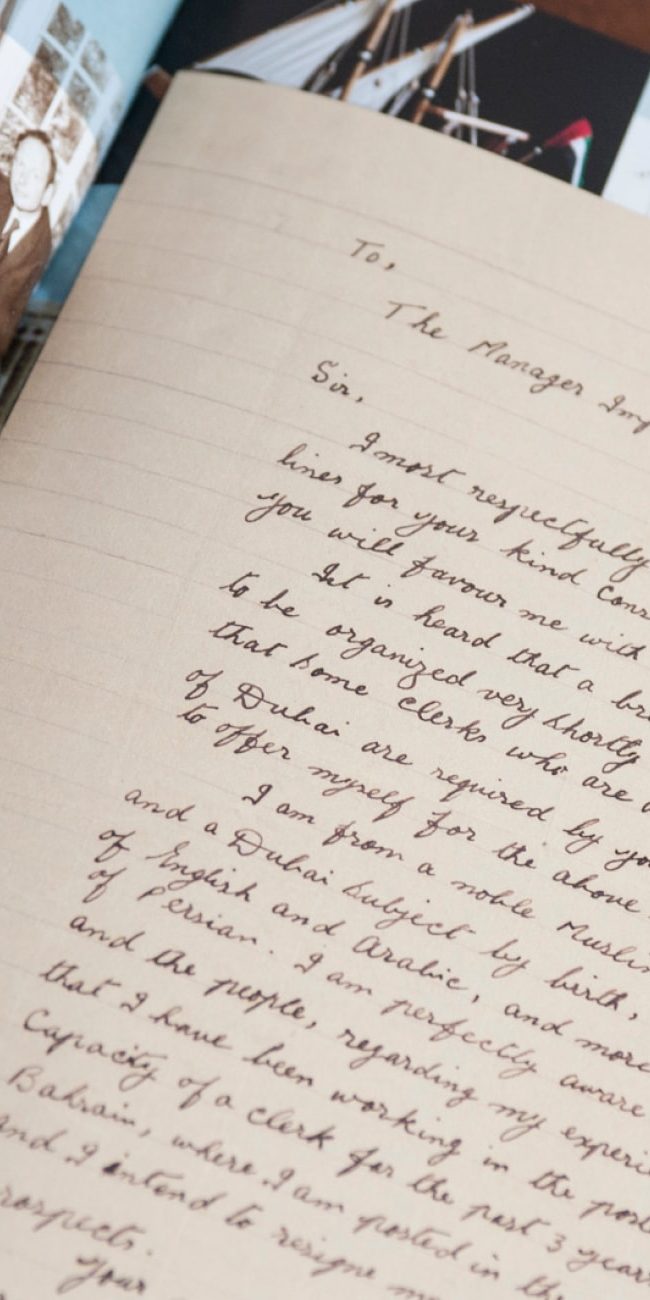 To,
The Manager Imp
Sir,
I most respectfully
lines for your kind cons
you will favour me with
Iet is heard that a bra
to be organized very shortly
that some clerks who are
of Dubai are required by you
to offer myself for the above
I am from a noble Muslim
and a Dubai Subject by birth,
of English and Arabic, and more
of Persian. I am perfectly aware
and the people, regarding my experi
that I have been working in the post
Capacity of a clerk for the past 3 years
Bahrain, where I am posted in the
and I intend to resigne
rospects.
Your